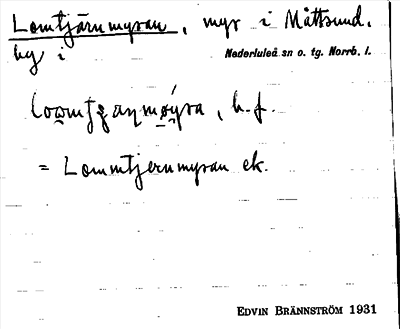 Lomtjärnmyran, myr i Måttsund,
by i Nederluleå sn o. tg. Norrb. l.
b.f.
= Lommtjernmyran ek.
EDVIN BRÄNNSTRÖM 1931